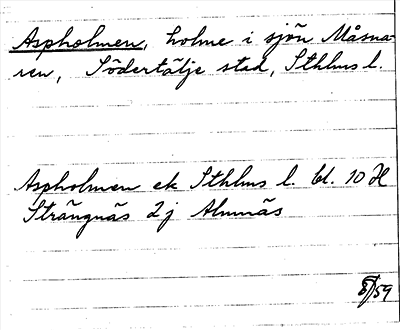 Aspholmen, holme i sjön Måsna-
ren, Södertälje stad, Sthlms l.
Aspholmen ek Sthlms l. bl. 10 H
Strängnäs 2 j Almnäs
/59